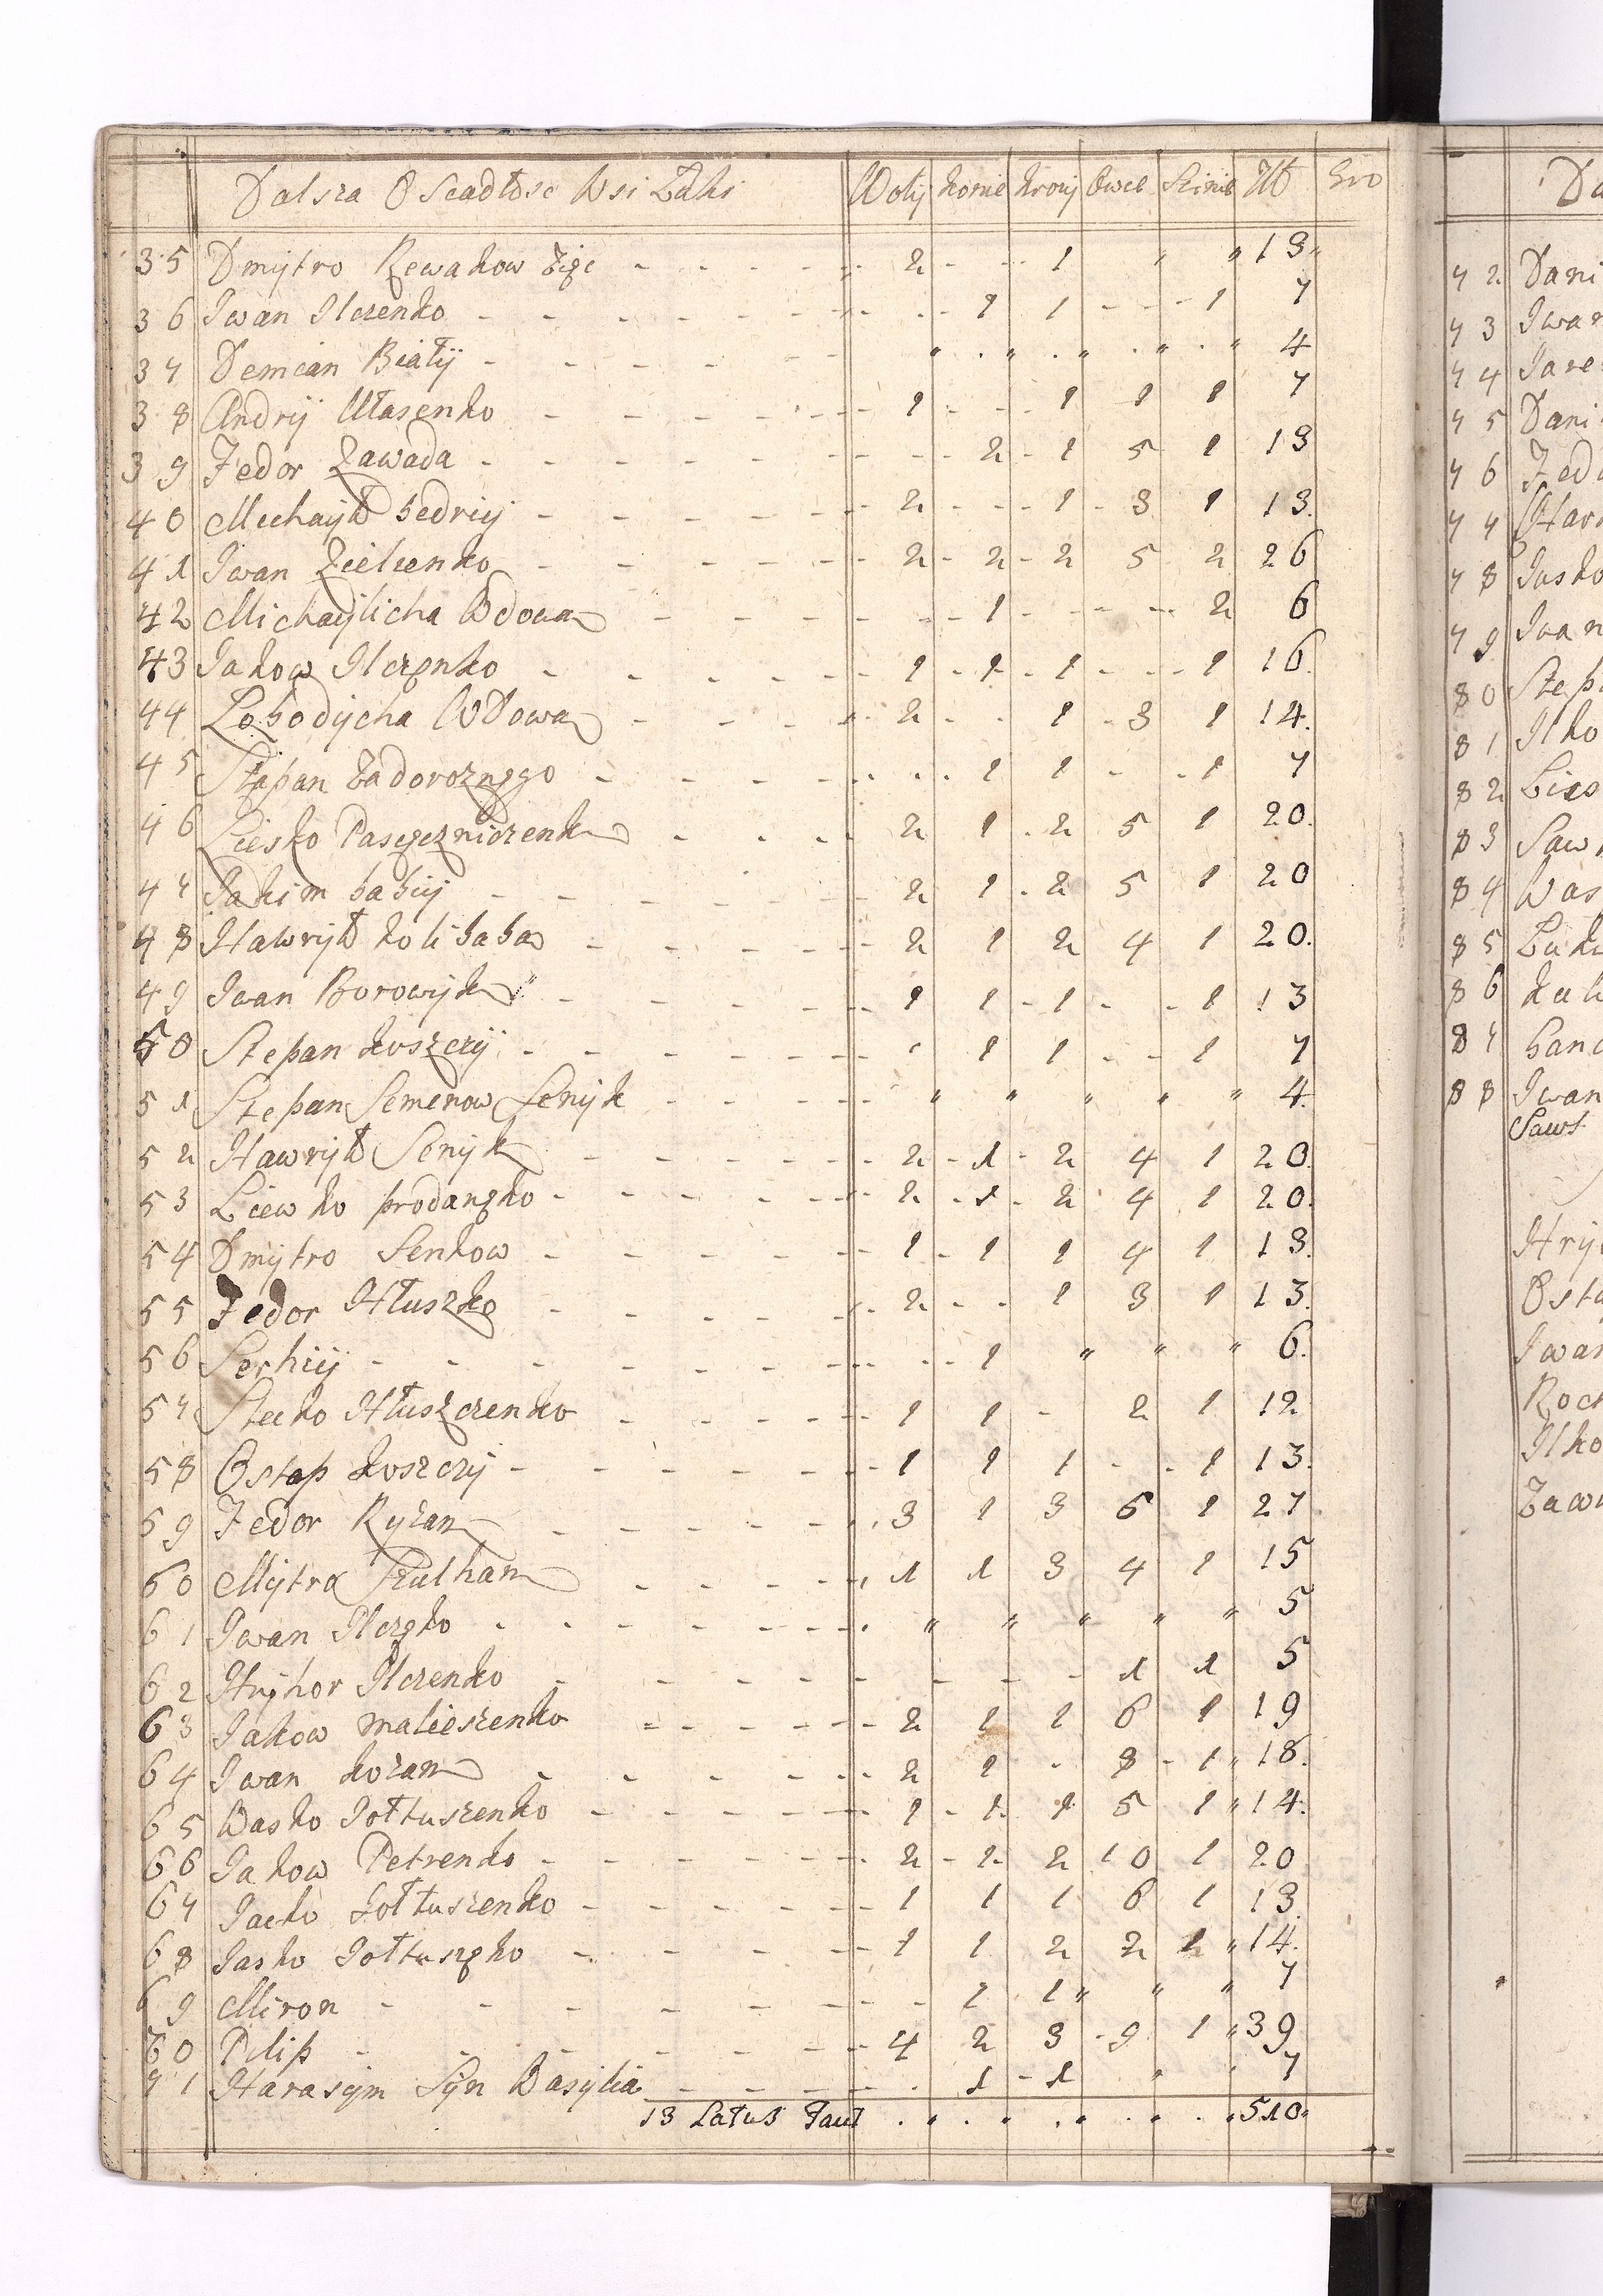 Dalsza Osiadłosc Wsi Łuki Wołij konie krowij Owce Swinie Złł Gro
35 Dmijtro Rewakow Zięc - - - - - 2 - - - 1 " " 13 "
36 Jwan Jlczenko - - - - - - - 1 1 - - - 1 7
37 Demian Białÿ - - - - - " " " " " 4
38 Andrij Ułasenko - - - - - 1 - - - 1 1 1 7
39 Fedor Zawada - - - - - - - 2 - 1 5 1 13
40 Michayło bedrij - - - - - 2 - - - 1 - 3 1 13.
41 Jwan Zielienko - - - - - 2 - 2 - 2 5 2 26
42 Michaijlicha Wdowa - - - - - - 1 - - - - 2 6
43 Jakow Jlczenko - - - - - 1 - 1 - 1 - - - 1 16.
44 Łobodijcha Wdowa - - - - 2 - - 1 - 3 1 14.
45 Stepan Zadoroznego - - - - - 1 1 - - 1 7
46 Liesko Pasieczniczenko - - - 2 1 - 2 5 1 20.
47 Jakim babij - - - - - 2 1 - 2 5 1 20
48 Hawryło kolibaba - - - - - 2 1 2 4 1 20.
49 Jwan Borowijk - - - - - 1 1 - 1 - - 1 13
50 Stepan koszczij - - - - - 1 1 - - 1 7
51 Stepan Semenow Senijk - - - - " " " " " 4.
52 Hawryło Senijk - - - - - 2 - 1 - 2 4 1 20.
53 Liewko prodanko - - - - - 2 - 1 - 2 4 1 20.
54 Dmijtro Senkow - - - - - 1 - 1 1 4 1 13.
55 Fedor Hłuszko - - - - - 2 - - 1 3 1 13.
56 Serhij - - - - - - - - 1 " " " 6.
57 Stecko Hłuszczenko - - - - - 1 1 - 2 1 12
58 Ostap koszczij - - - - - 1 1 1 - - 1 13.
59 Fedor Ryzan - - - - - 3 1 3 6 1 27
60 Mijtro - - - - 1 1 3 4 1 15
61 Jwan Jlczenko - - - - - " " " " " 5
62 Hrijhor Jlczenko - - - - - - - - 1 1 5
63 Jakow malieszenko - - - - - 2 1 1 6 1 19
64 Jwan kozan - - - - - 2 1 - 8 - 1 " 18.
65 Wasko Jołtuszenko - - - - - 1 - 1 1 5 1 " 14.
66 Jakow Petrenko - - - - - 2 - 2 - 2 10 1 20
67 Jacko Jołtuszenko - - - - - 1 1 1 6 1 13.
68 Jasko Jołtuszenko - - - - - 1 1 2 2 1 " 14.
69 Miron - - - - - - - 1 1 " " " 7
70 Pilip - - - - - - 4 2 3 - 9 1 " 39
71 Harasym Syn Wasijlia - - - - 1 - 1 " " 7
13 Latus Facit . " . " . " . " . " 510 "
Da
72 Dani
73 Jwan
74 Jare
75 Dani
76 Fed
77 Har
78 Jasko
79 Jwan
80 Step
81 Jlko
82 Lies
83 Saw
84 Was
85 Luk
86 kul
87 han
88 Jwan
Saws
Hrij
Osta
Jwan
Roc
Jlko
Zaw